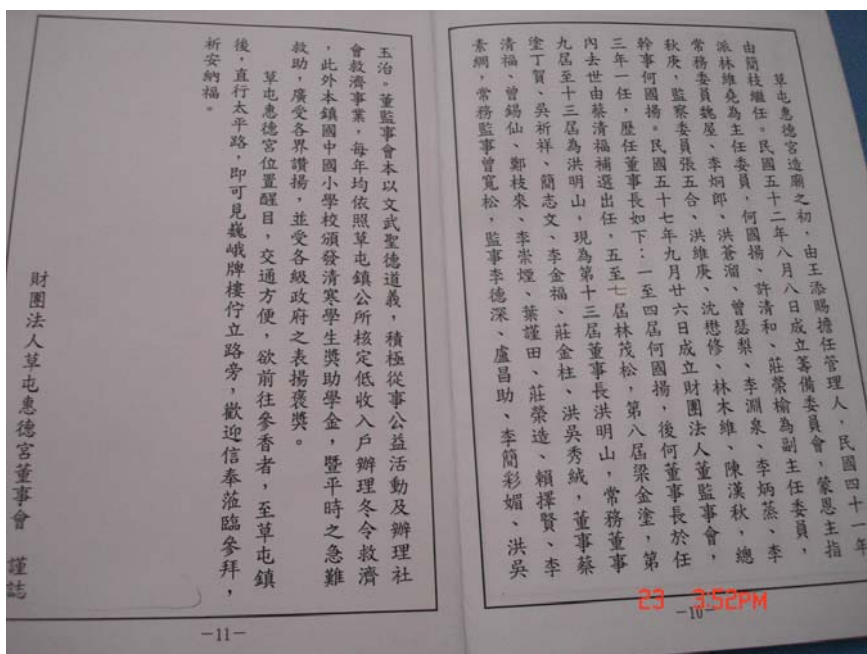 草屯惠德宮造廟之初，由王添賜擔任管理人，民國四十一年
由簡枝繼任。民國五十二年八月八日成立籌備委員會，蒙恩主指
派林維堯為主任委員，何國揚、許清和、莊榮榆為副主任委員，
常務委員魏屋、李炯郎、洪蒼溜、曾瑟梨、李淵泉、李炳蒸、李
秋庚，監察委員張五合、洪維庚、沈懋修、林木維、陳漢秋，總
幹事何國揚。民國五十七年九月廿六日成立財團法人董監事會，
三年一任，歷任董事長如下：一至四屆何國揚，後何董事長於任
內去世由蔡清福補選出任，五至七屆林茂松，第八屆梁金塗，第
九屆至十三屆為洪明山，現為第十三屆董事長洪明山，常務董事
塗丁賀、吳祈祥、簡志文、李金福、莊金柱、洪吳秀絨，董事蔡
清福、曾錫仙、鄭枝來、李崇煙、葉謹田、莊榮造、賴擇賢、李
素綢，常務監事曾寬松，監事李德深、盧昌助、李簡彩媚、洪吳
－10－
玉治。董監事會本以文武聖德道義，積極從事公益活動及辦理社
會救濟事業，每年均依照草屯鎮公所核定低收入戶辦理冬令救濟
，此外本鎮國中國小學校頒發清寒學生獎助學金，暨平時之急難
救助，廣受各界讚揚，並受各級政府之表揚褒獎。
草屯惠德宮位置醒目，交通方便，欲前往參香者，至草屯鎮
後，直行太平路，即可見巍峨牌樓佇立路旁，歡迎信奉蒞臨參拜，
祈安納福。
財團法人草屯惠德宮董事會 謹誌
－11－
23 3:52PM